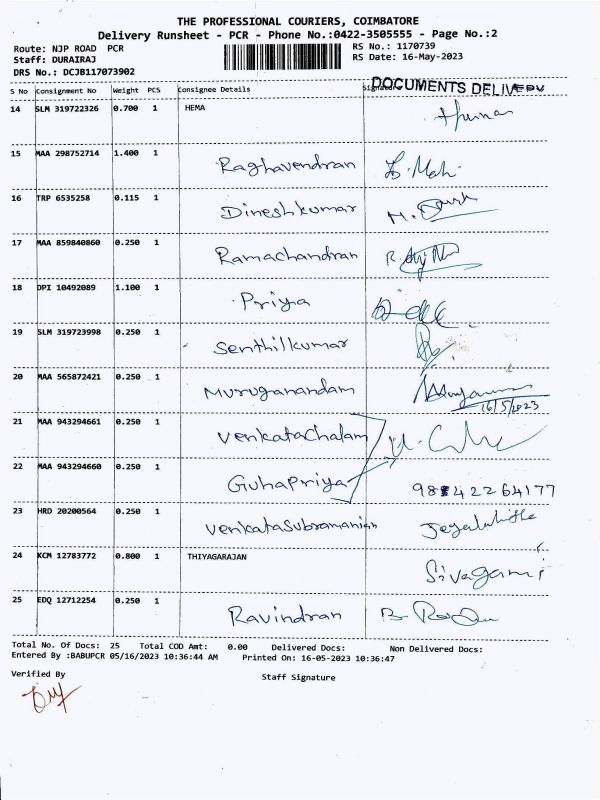 THE PROFESSIONAL COURIERS, COIMBATORE
Delivery Runsheet - PCR - Phone No.:0422-3505555 - Page No.:2
Route: NJP ROAD PCR
RS No.: 1170739
Staff: DURAIRAJ
RS Date: 16-May-2023
DRS No.: DCJB117073902
DOCUMENTS DELIVERY
S No Consignment No Weight PCS Consignee Details
14 SLM 319722326 0.700 1 HEMA
15 MAA 298752714 1.400 1 Raghavendran
16 TRP 6535258 0.115 1 Dineshkumar
17 MAA 859840860 0.250 1 Ramachandran
18 DPI 10492089 1.100 1 Priya
19 SLM 319723998 0.250 1 Senthilkumar
20 MAA 565872421 0.250 1 Muruganandam
16/5/2023
21 MAA 943294661 0.250 1 Venkatachalam
22 MAA 943294660 0.250 1 Guhapriya
23 HRD 20200564 0.250 1 Venkatasubramanian
24 KCM 12783772 0.800 1 THIYAGARAJAN Sivagami
25 EDQ 12712254 0.250 1 Ravindran
Total No. Of Docs: 25 Total COD Amt: 0.00 Delivered Docs: Non Delivered Docs:
Entered By :BABUPCR 05/16/2023 10:36:44 AM Printed On: 16-05-2023 10:36:47
Verified By
Staff Signature